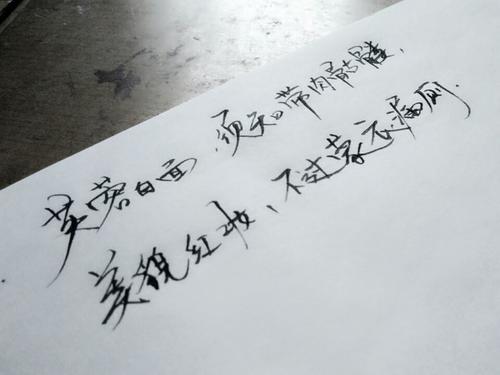 芙蓉白面,须知带肉骷髅,
美貌红妆,不过蒙衣漏厕.